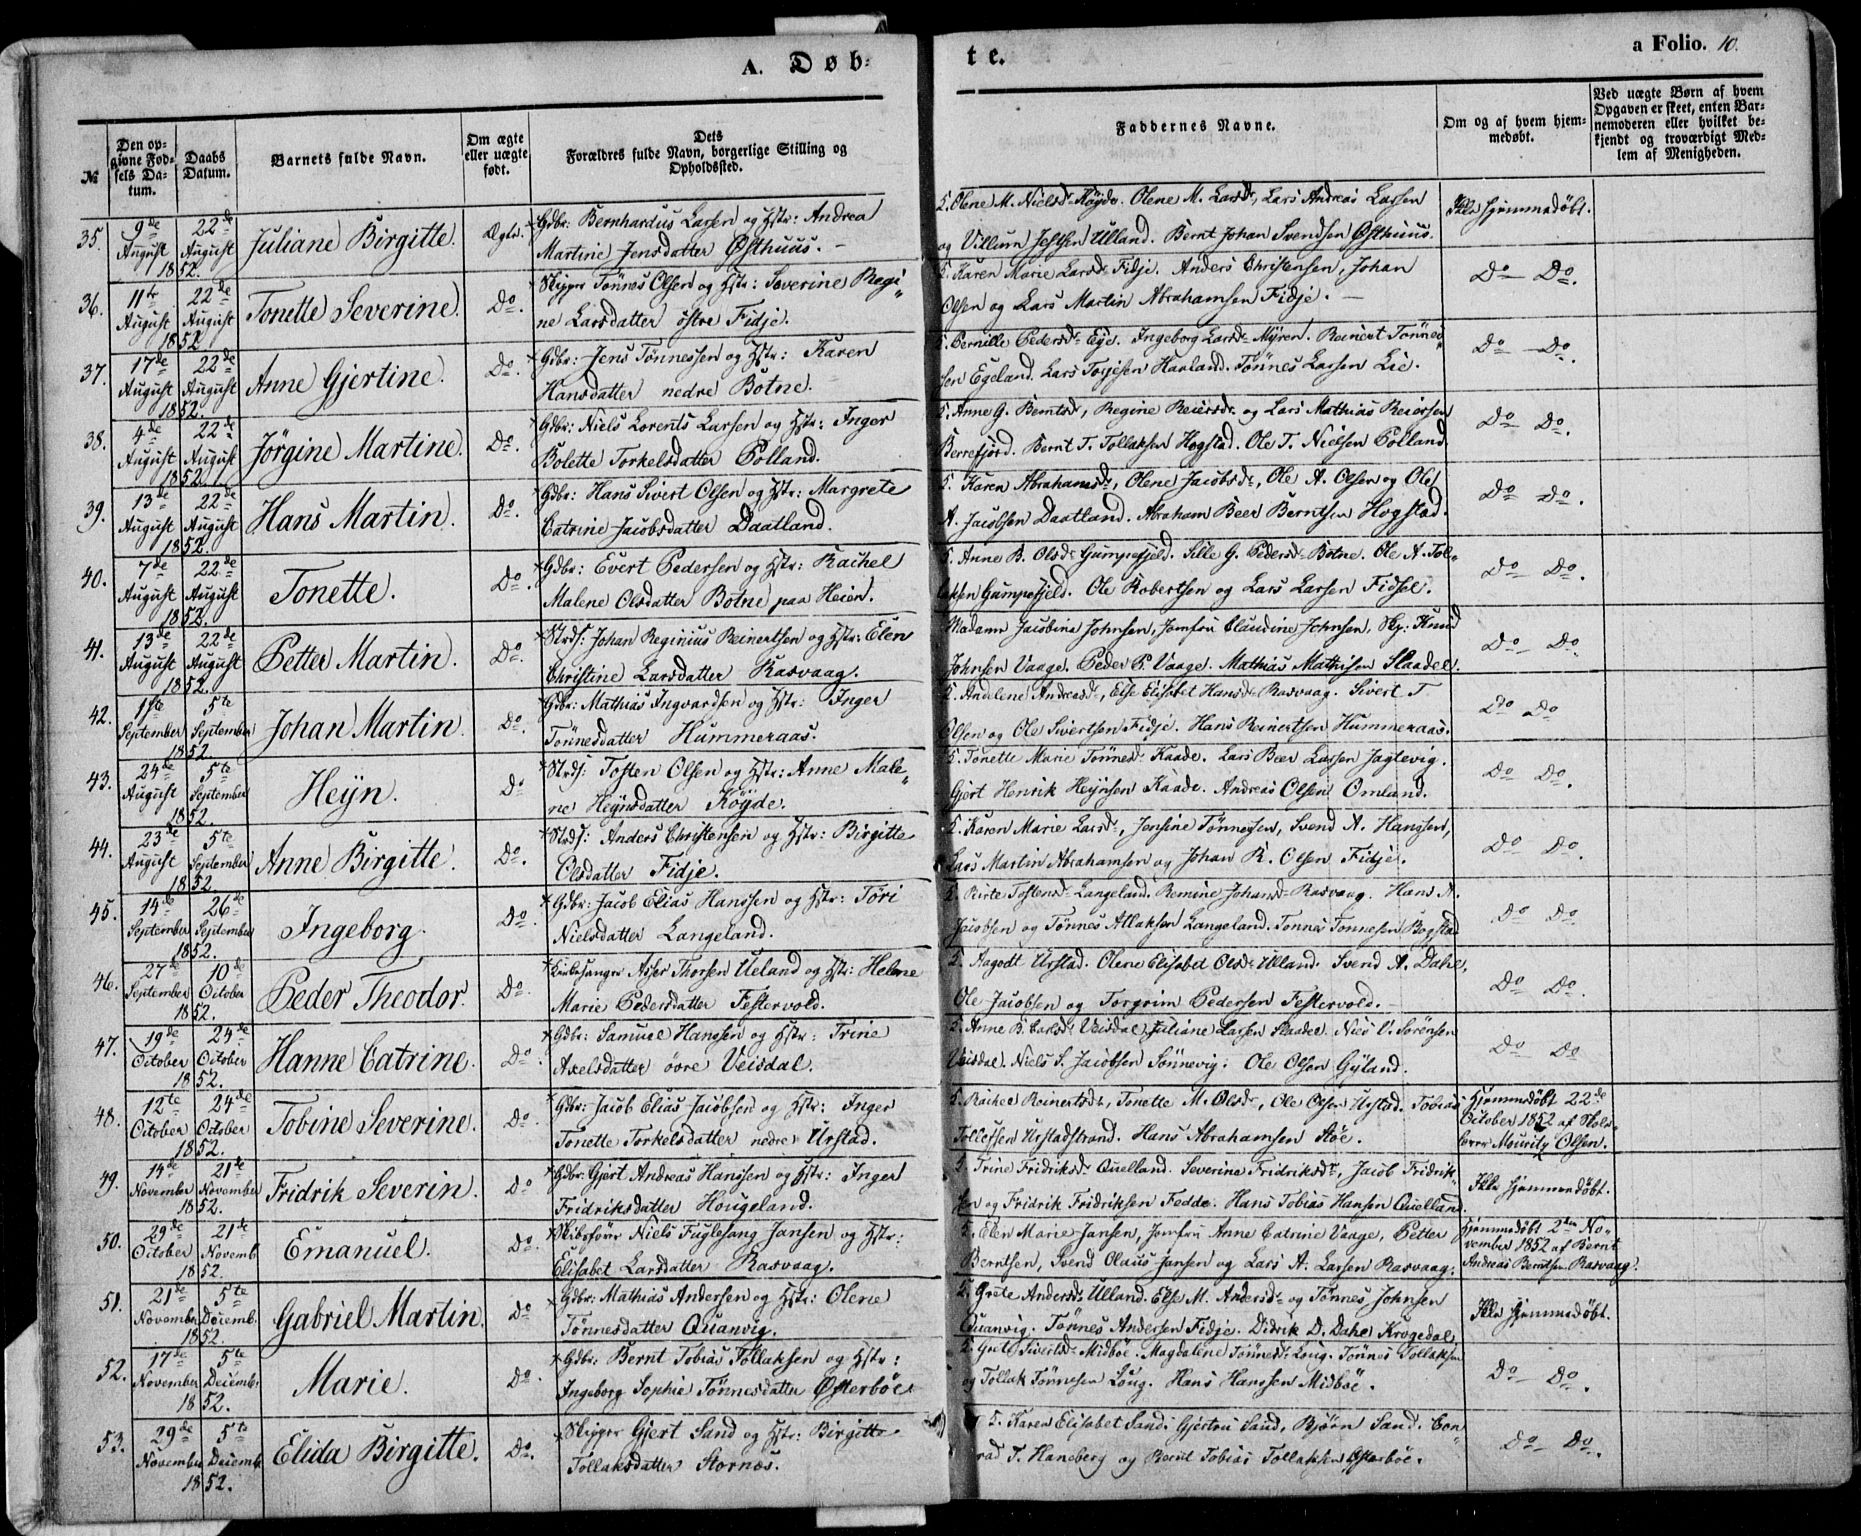 A. Døb-
te.
a Folio. 10.
№
Den opgivne Fødsels Datum.
Daabs Datum.
Barnets fulde Navn.
Om ægte eller uægte født.
Dets Forældres fulde Navn, borgerlige Stilling og Opholdssted.
Faddernes Navne.
Om og af hvem hjemmedøbt.
Ved uægte Børn af hvem Opgaven er skeet, enten Barnemoderen eller hvilket bekjendt og troværdigt Medlem af Menigheden.
35. 9de August 22de August 1852. Juliane Birgitte. Ægte.
Gdbr: Bernhardus Larsen og Hstr: Andrea
Martine Jensdatter Østhuus. –
5. Olene M. Nielsdr Røyde. Olene M. Larsdr, Lars Andreas Larsen
og Villum Ulland. Bernt Johan Svendsen Østhuus.
Ikke hjemmedøbt.
36. 11te August 22de August 1852. Tonette Severine. Do.
Skipper Tønnes Olsen og Hstr: Severine Regi„
ne Larsdatter östre Fidje.
5. Karen Marie Larsdr Fidje. Anders Christensen, Johan
Olsen og Lars Martin Abrahamsen Fidje. –
Do – Do.
37. 17de August 22de August 1852. Anne Gjertine. Do.
Gdbr: Jens Tönnessen og Hstr: Karen
Hansdatter nedre Botne.
5. Pernille Pedersdr Eye. Ingeborg Larsdr Myren. Reinert Tönnes„
sen Egeland. Lars Torjesen Haaland. Tönnes Larsen Lie.
Do – Do.
38. 4de August 22de August 1852. Jörgine Martine. Do.
Gdbr: Niels Lorents Larsen og Hstr: Inger
Bolette Torkelsdatter Polland.
5. Anne G. Berntsdr, Regine Reiersdr og Lars Mathias Reiersen
Berrefjord. Bernt T. Tollaksen Hogstad. Ole T. Nielsen Polland.
Do – Do.
39. 13de August 22de August 1852. Hans Martin. Do.
Gdbr: Hans Sivert Olsen og Hstr: Margrete
Catrine Jacobsdatter Daatland.
5. Karen Abrahamsdr, Olene Jacobsdr, Ole A. Olsen og Ole
A. Jacobsen Daatland. Abraham Beer Berntsen Hogstad.
Do – Do.
40. 7de August 22de August 1852. Tonette. Do.
Gdbr: Evert Pedersen og Hstr: Rachel
Malene Olsdatter Botne paa Heien.
5. Anne B. Olsdr Gumpefjeld. Sille G. Pedersdr Botne. Ole A. Tol„
laksen Gumpefjeld. Ole Robertsen og Lars Larsen Fidsel.
Do – Do.
41. 13de August 22de August 1852. Petter Martin. Do.
Strds: Johan Reginius Reinertsen og Hstr: Elen
Christine Larsdatter Rasvaag.
Madam Jacobine Johnsen, Jomfru Claudine Johnsen, Skp: Knud
Johnsen Vaage. Peder P. Vaage. Mathias Mathisen Staadel.
Do – Do.
42. 1ste September 5te September 1852. Johan Martin. Do.
Gdbr: Mathias Ingvardsen og Hstr: Inger
Tönnesdatter Hummeraas.
5. Andelene Andreasdr, Else Elisabet Hansdr Rasvaag. Sivert T
Olsen og Ole Sivertsen Fidje. Hans Reinertsen Hummeraas.
Do Do
43. 24de August 5te September 1852. Heyn. Do
Strds: Tosten Olsen og Hstr: Anne Male„
ne Heynsdatter Röyde.
5. Tonette Marie Tönnesdr Kaade. Lars Beer Larsen Jagtevig.
Gjert Henrik Heynsen Kaade. Andreas Olsen Omland.
Do Do.
44. 23de August 5te September 1852. Anne Birgitte. Do.
Strds: Anders Christensen og Hstr: Birgitte
Olsdatter Fidje.
5. Karen Marie Larsdr, Jensine Tönnessen, Svend A. Hanssen,
Lars Martin Abrahamsen og Johan R. Olsen Fidje.
Do Do.
45. 14de September 26de September 1852. Ingeborg. Do.
Gdbr: Jacob Elias Hanssen og Hstr: Töri
Nielsdatter Langeland.
5. Birte Tostensdr Langeland. Remine Johansdr Rasvaag. Hans A.
Jacobsen og Tönnes Atlaksen Langeland. Tönnes Tönnesen Bogstad
Do Do.
46. 27de September 10de October 1852. Peder Theodor. Do.
Kirkesanger Asser Thorsen Ueland og Hstr: Helene
Marie Pedersdatter Festervold.
5. Aagodt Urstad. Olene Elisabet Olsdr Ulland. Svend A. Dahle,
Ole Jacobsen og Torgrim Pedersen Festervold. –
Do Do.
47. 19de October 24de October 1852. Hanne Catrine. Do.
Gdbr: Samuel Hanssen og Hstr: Trine
Axelsdatter övre Veisdal.
5. Anne B. Veisdal, Juliane Larsen Staadel. Niels V. Sörensen
Veisdal. Niels S. Jacobsen Sönnevig. Ole Olsen Gyland.
Do Do
48. 12te October 24de October 1852. Tobine Severine. Do
Gdbr: Jacob Elias Jacobsen og Hstr: Inger
Tonette Torkelsdatter nedre Urstad.
5. Rachel Reinertsdr, Tonette M. Olsdr, Ole Olsen Urstad. Tobias
Tollefsen Urstadstrand. Hans Abrahamsen Stöe.
Hjemmedöbt 22de
October 1852 af Skol„
lærer Mouritz Olsen.
49. 14de November 21de November 1852. Fridrik Severin. Do
Gdbr: Gjert Andreas Hanssen og Hstr: Inger
Fridriksdatter Hougeland.
5. Trine Fridriksdr Quelland. Severine Fridriksdr, Jacob Fridrik„
sen og Fridrik Fridriksen Fedde. Hans Tobias Hansen Quelland.
Ikke hjemmedöbt.
50. 29de October 21de Novemb. 1852. Emanuel. Do.
Skibsförer Niels Fuglesang Jansen og Hstr:
Elisabet Larsdatter Rasvaag.
5. Elen Marie Jansen, Jomfru Anne Catrine Vaage, Petter
Berntsen, Svend Olaus Jansen og Lars A. Larsen Rasvaag.
Hjemmedöbt 2den No„
vember 1852 af Bernt
Andreas Berntsen Rasvaag.
51. 21de Novembr 5te Decemb. 1852. Gabriel Martin. Do
Gdbr: Mathias Andersen og Hstr: Olene
Tönnesdatter Quanvig.
5. Grete Andersdr Ulland. Else M. Andersdr og Tönnes Johnsen
Quanvig. Tönnes Andersen Fidje. Didrik D. Dahle Krogedal.
Ikke hjemmedöbt.
52. 17de November 5te Decembr 1852. Marie. Do.
Gdbr: Bernt Tobias Tollaksen og Hstr:
Ingeborg Sophie Tönnesdatter Østerböe.
5. Grete Sivertsdr Midböe. Magdalene Tönnesdr Loug. Tönnes Tollaksen
og Tollak Tönnesen Loug. Hans Hanssen Midböe.
Do – Do.
53. 29de November 5te Decemb. 1852. Elida Birgitte. Do.
Skipper Gjert Sand og Hstr: Birgitte
Tollaksdatter Stornæs.
5. Karen Elisabet Sand. Gjertru Sand, Björn Sand. Con„
rad T. Haneberg og Bernt Tobias Tollaksen Østerböe.
Do – Do.